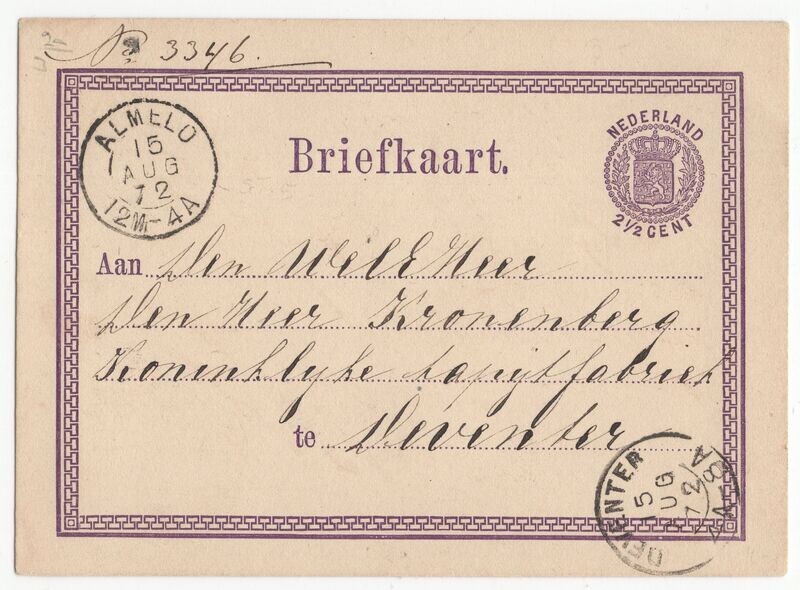 No 3346.
ALMELO
15
AUG
72
12M-4A
Briefkaart.
NEDERLAND
2½ CENT
Aan Den WelE Heer
Den Heer Kronenberg
Koninklyke tapijtfabriek
te Deventer
DEVENTER
15
AUG
72
4A-8A